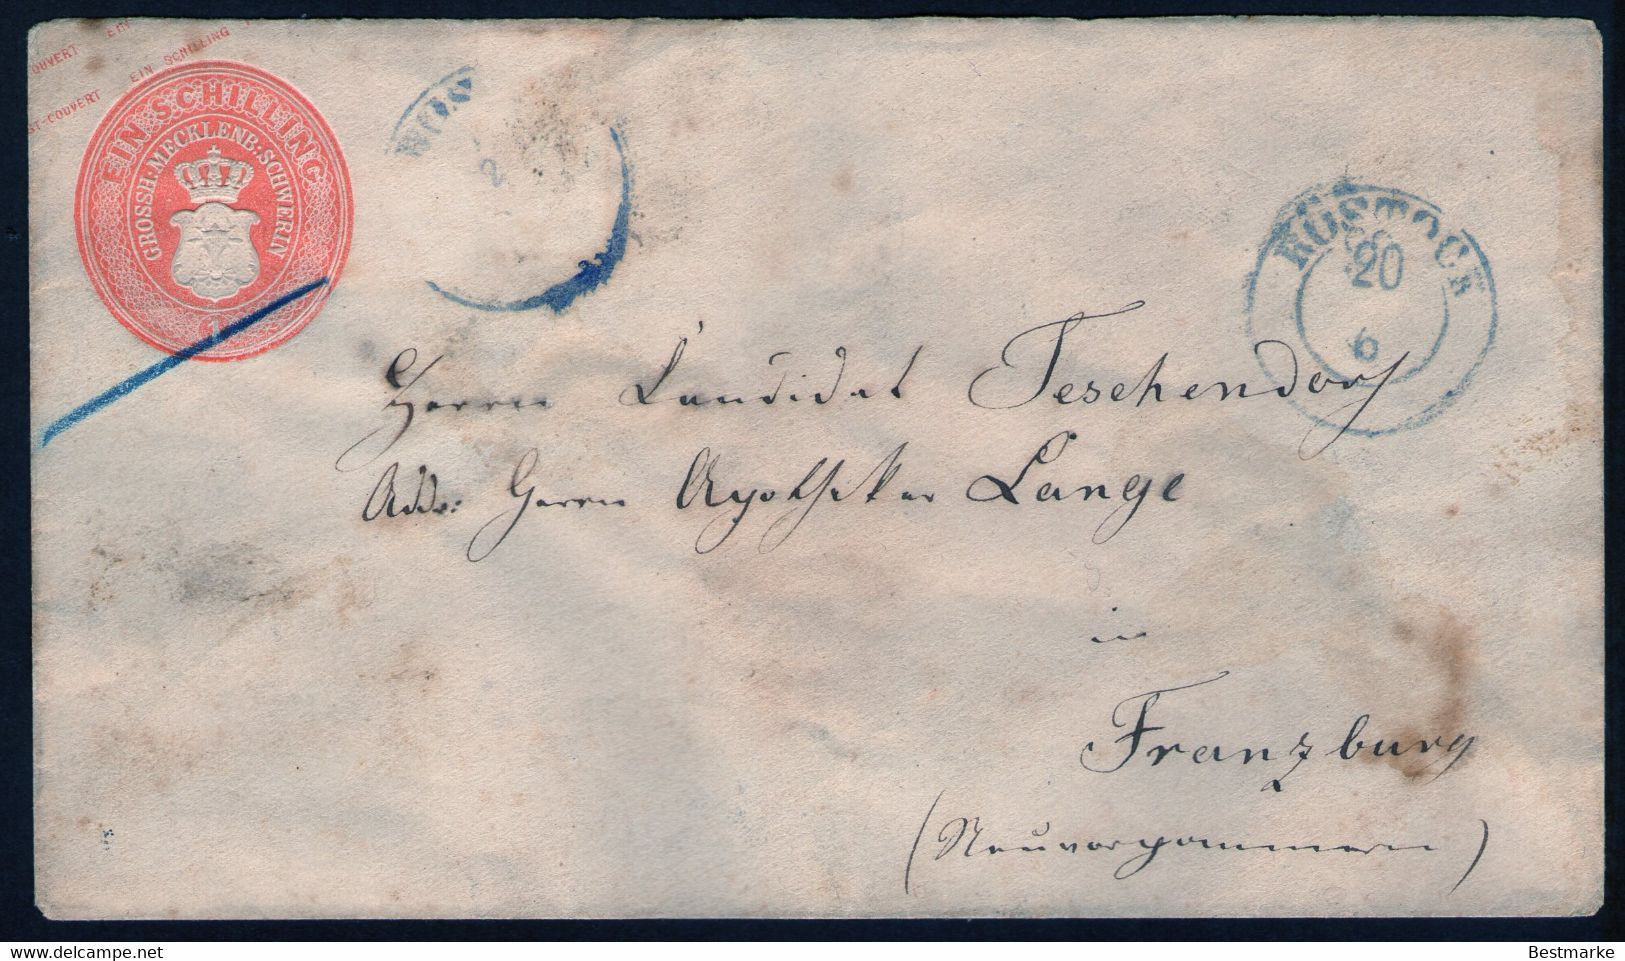 OUVERT EIN
EIN SCHILLING
ST-COUVERT
EIN SCHILLING
GROSSH. MECKLENB. SCHWERIN
1
ROS
2
ROSTOCK
20
6
Herrn Kandidat Teschendorf
Addr: Herrn Apotheker Lange
in
Franzburg
(Neuvorpommern)
Bestmarke